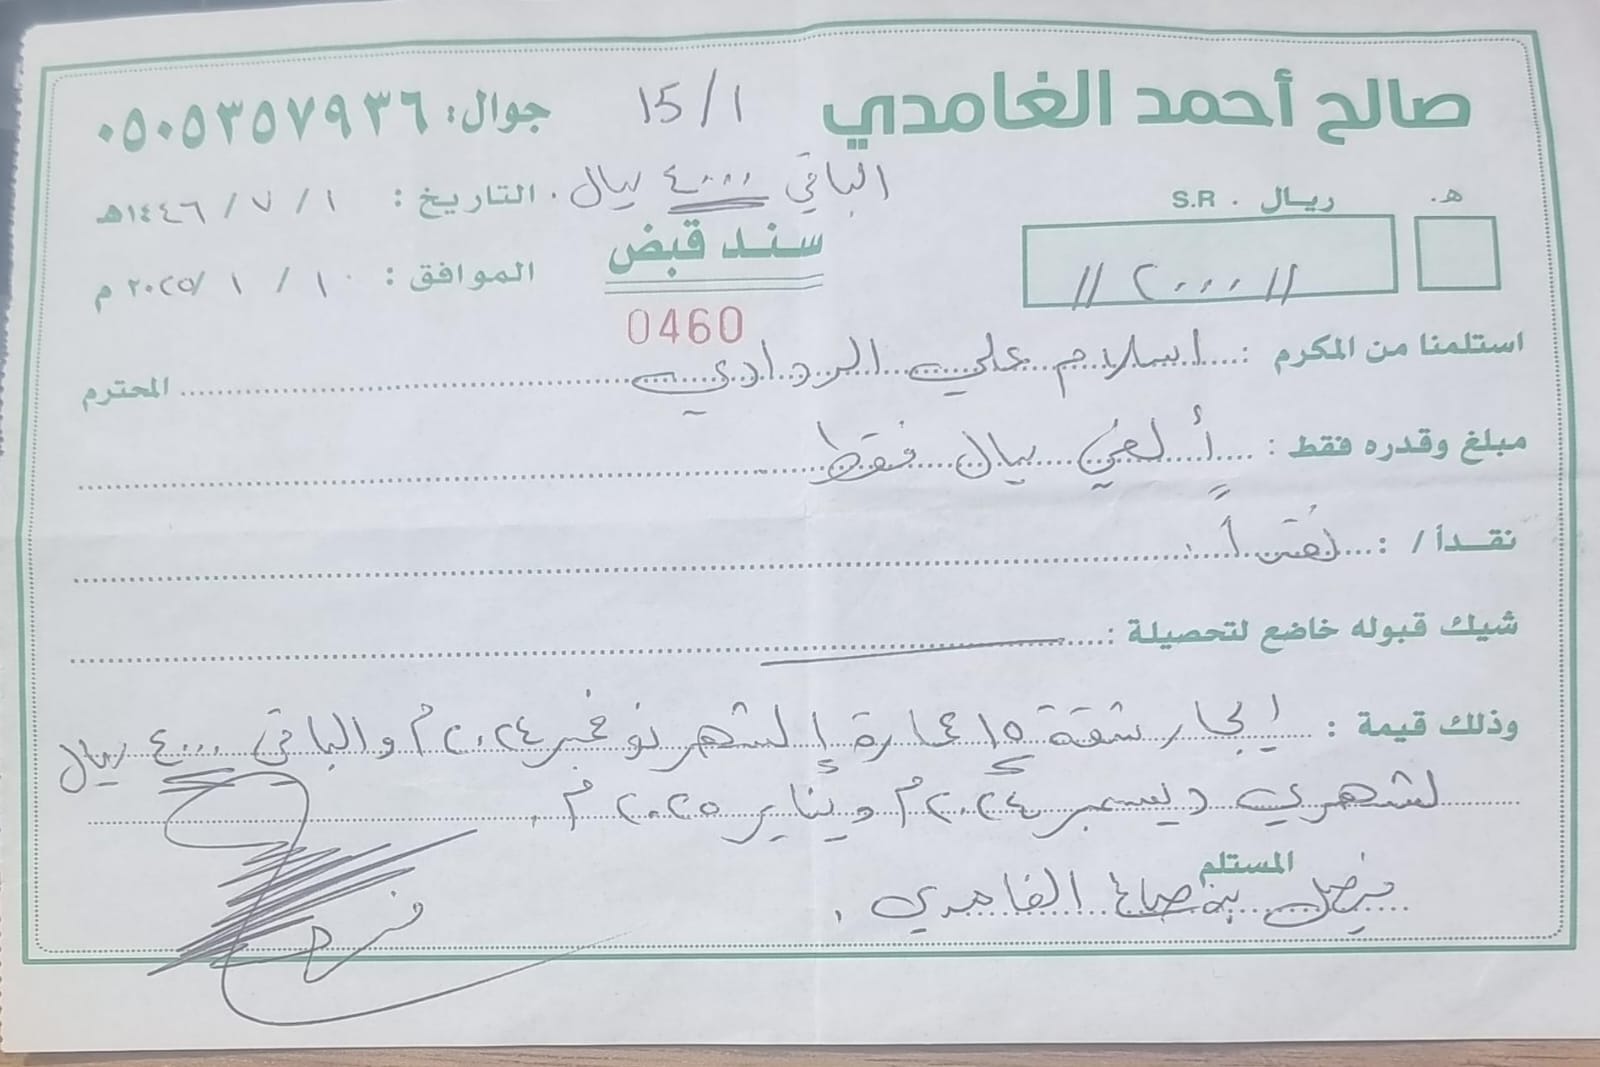 صالح أحمد الغامدي
15/1
جوال: ٠٥٠٥٣٥٧٩٣٦
الباقي ٤٠٠٠ ريال.
التاريخ: ١ / ٧ / ١٤٤٦هـ
هـ. ريـال . S.R
سند قبض
الموافق: ١٠ / ١ / ٢٠٢٥ م
// ٢٠٠٠ //
0460
استلمنا من المكرم: اسلام علي الردادي المحترم
مبلغ وقدره فقط: ألفي ريال فقط
نقـدأ /: نقداً
شيك قبوله خاضع لتحصيلة:
وذلك قيمة: إيجار شقة ١٥ عمارة ١ لشهر نوفمبر ٢٠٢٤م والباقي ٤٠٠٠ ريال
لشهري ديسمبر ٢٠٢٤م ويناير ٢٠٢٥م.
المستلم
فيصل بن صالح الغامدي.